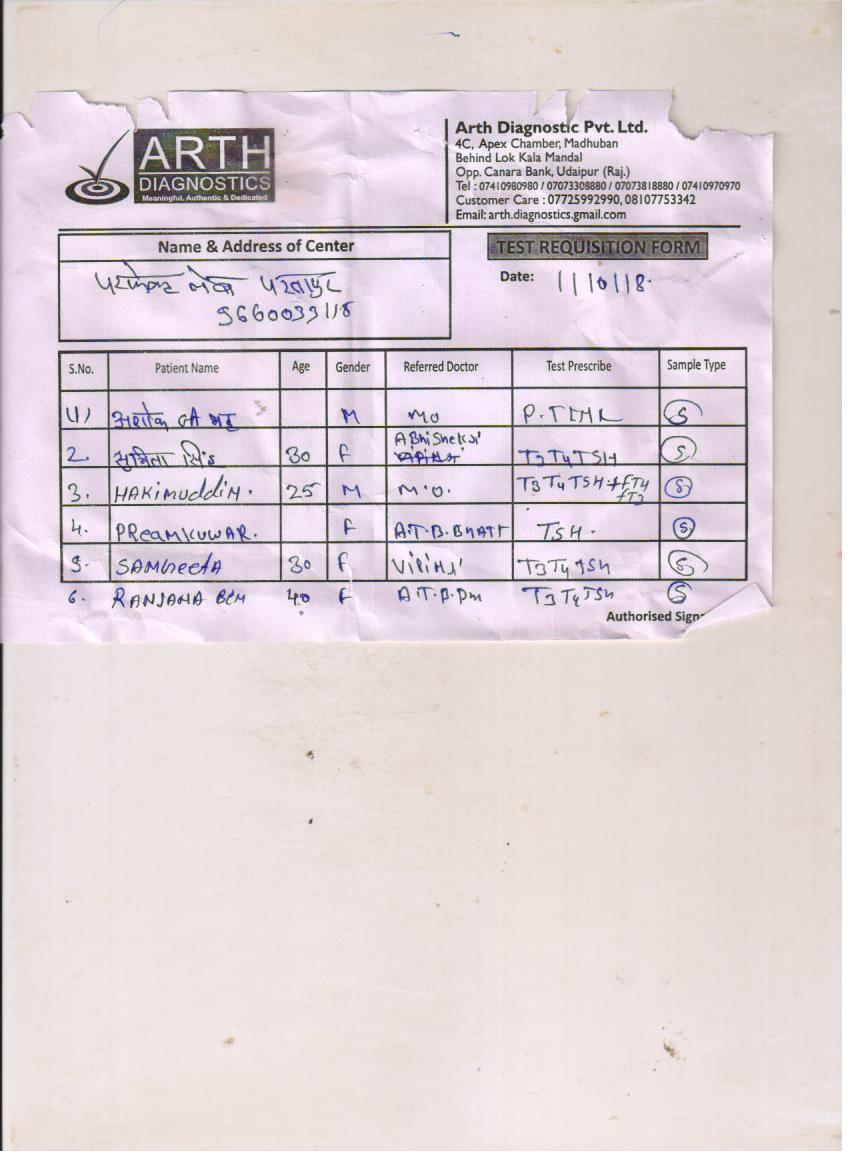 ARTH
DIAGNOSTICS
Meaningful, Authentic & Dedicated
Arth Diagnostic Pvt. Ltd.
4C, Apex Chamber, Madhuban
Behind Lok Kala Mandal
Opp. Canara Bank, Udaipur (Raj.)
Tel : 07410980980 / 07073308880 / 07073818880 / 07410970970
Customer Care : 07725992990, 08107753342
Email: arth.diagnostics.gmail.com
Name & Address of Center
TEST REQUISITION FORM
Date: 1/10/18.
9660033118
S.No. Patient Name Age Gender Referred Doctor Test Prescribe Sample Type
1) M MO S
2. सुमिता सिंह 30 F Abhishekji T3 T4 TSH S
3. HAKimuddin. 25 M M.O. T3 T4 TSH + fT4 S
+fT3
4. PReamKUWAR. F A.T.B.BHATT TSH. S
5. SAMGeetA 30 F ViPinJi T3 T4 TSH S
6. RANJANA 40 F T3 T4 TSH S
Authorised Sign